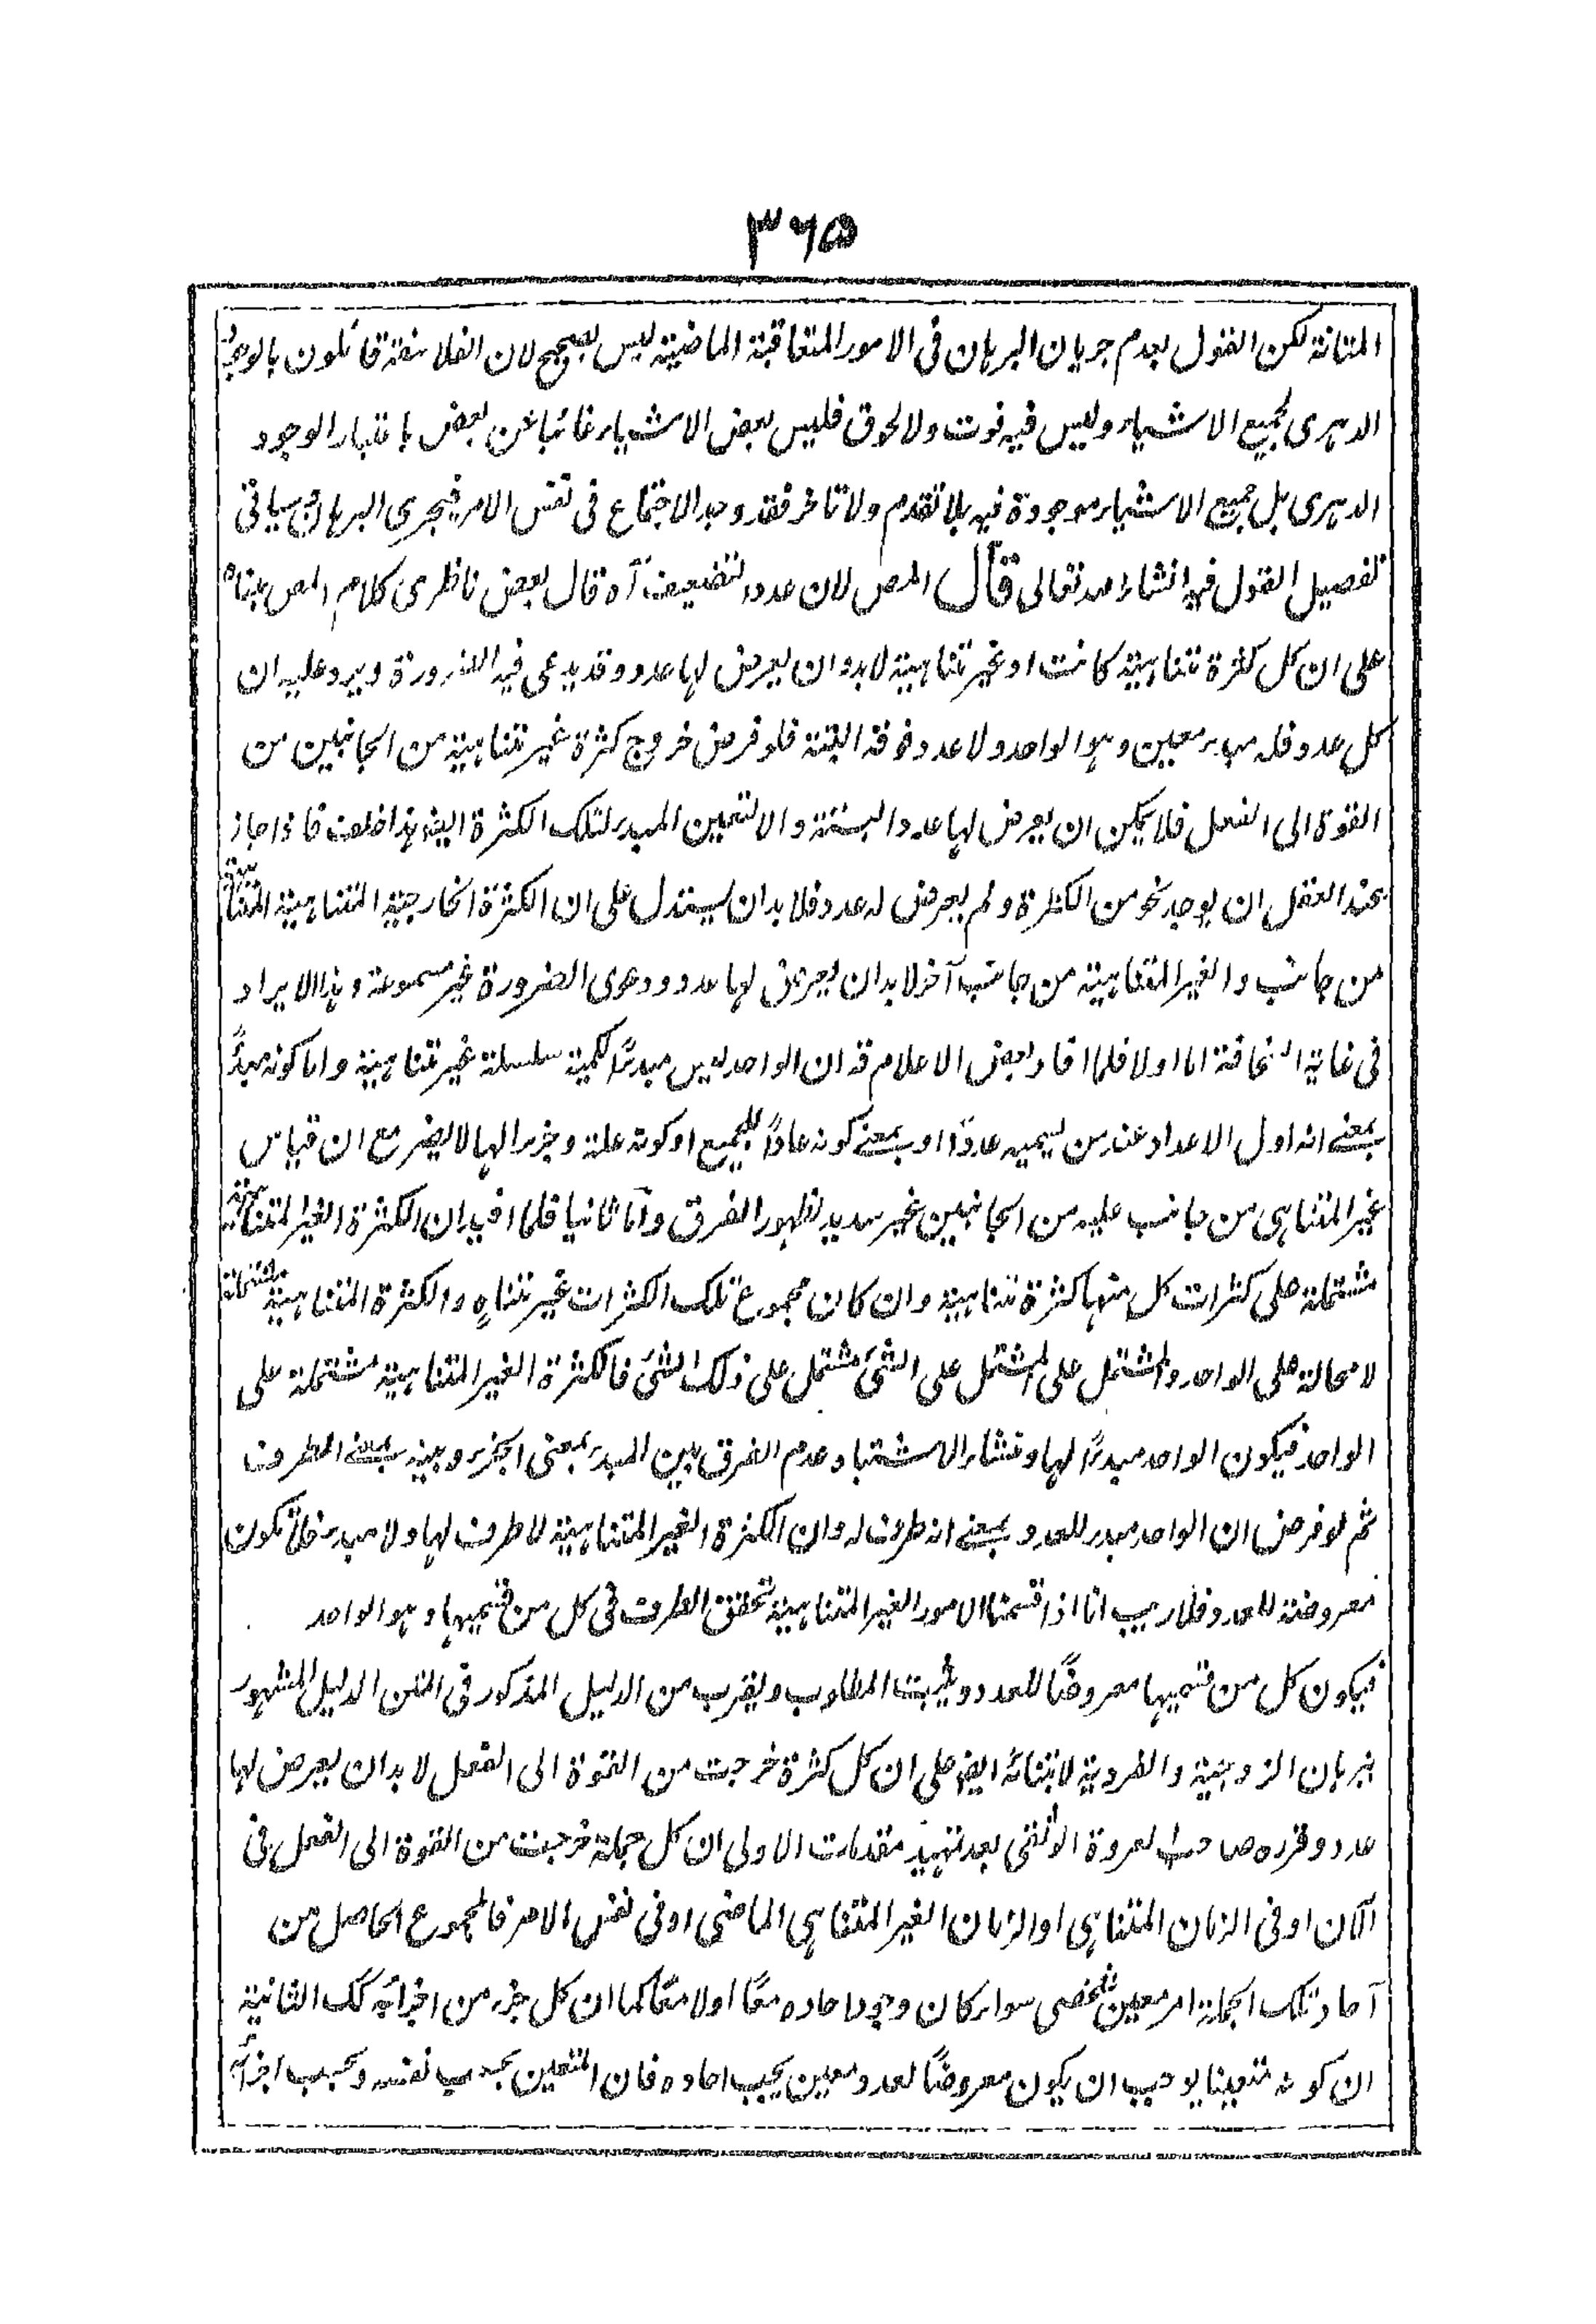 ۳۶۵
المتانة لكن القول بعدم جريان البرهان فى الامور المتعاقبة الماضية ليس بصحيح لان الفلاسفة قائلون بالوجود
الدهرى لجميع الاشياء وليس فيه فوت ولا لحوق فليس بعض الاشياء غائبا عن بعض باعتبار الوجود
الدهرى بل جميع الاشياء موجودة فيه بلا تقدم ولا تاخر فقد وجد الاجتماع فى نفس الامر فيجرى البرهان وسياتى
تفصيل القول فيه انشاء الله تعالى قال المص لان عدد التضعيف آه قال بعض ناظرى كلام المص بناه
على ان كل كثرة متناهية كانت او غير متناهية لابد وان يعرض لها عدد وقد يدعى فيه الضرورة ويرد عليه ان
كل عدد فله مبدء معين وهو الواحد ولا عدد فوقه البتة فلو فرض خروج كثرة غير متناهية من الجانبين من
القوة الى الفعل فلا يمكن ان يعرض لها عدد البتة والا لتعين المبدء لتلك الكثرة ايضا هذا خلف فاذا جاز
عند العقل ان يوجد نحو من الكثرة ولم يعرض له عدد فلا بد ان يستدل على ان الكثرة الخارجية المتناهية
من جانب والغير المتناهية من جانب آخر لابد ان يعرض لها عدد ودعوى الضرورة غير مسموعة وهذا الايراد
فى غاية السخافة اما اولا فلما افاد بعض الاعلام قه ان الواحد ليس مبدءً لكمية سلسلة غير متناهية واما كونه مبدءً
بمعنى انه اول الاعداد عند من يسميه عددًا او بمعنى كونه عادًا للجميع او كونه علة وجزء الها لا يضر مع ان قياس
غير المتناهى من جانب عليه من الجانبين غير سديد لظهور الفرق واما ثانيا فلما افيد ان الكثرة الغير المتناهية
مشتملة على كثرات كل منها كثرة متناهية وان كان مجموع تلك الكثرات غير متناهٍ والكثرة المتناهية مشتملة
لا محالة على الواحد والمشتمل على المشتمل على الشئ مشتمل على ذلك الشئ فالكثرة الغير المتناهية مشتملة على
الواحد فيكون الواحد مبدءً لها ومنشاء الاشتباه عدم الفرق بين المبدء بمعنى الجزء وبينه بمعنى الطرف
ثم لو فرض ان الواحد مبدء للعدد بمعنى انه طرف له وان الكثرة الغير المتناهية لا طرف لها ولا مبدء فلا تكون
معروضة للعدد فلا ريب انا اذا قسمنا الامور الغير المتناهية تحقق الطرف فى كل من قسميها وهو الواحد
فيكون كل من قسميها معروضًا للعدد ويثبت المطلوب ويقرب من الدليل المذكور فى المتن الدليل المشهور
ببرهان الزوجية والفردية لابتنائه ايضا على ان كل كثرة خرجت من القوة الى الفعل لا بد ان يعرض لها
عدد وقرره صاحب العروة الوثقى بعد تمهيد مقدمات الاولى ان كل جملة خرجت من القوة الى الفعل فى
الآن او فى الزمان المتناهى او الزمان الغير المتناهى الماضى او فى نفس الامر فالمجموع الحاصل من
آحاد تلك الجملة امر معين شخصى سواء كان وجود احاده معًا اولا معًا كما ان كل جزء من اجزائه كك الثانية
ان كونه متعينا يوجب ان يكون معروضًا لعدد معين بحسب احاده فان المتعين بحسب نفسه وبحسب اجزائه